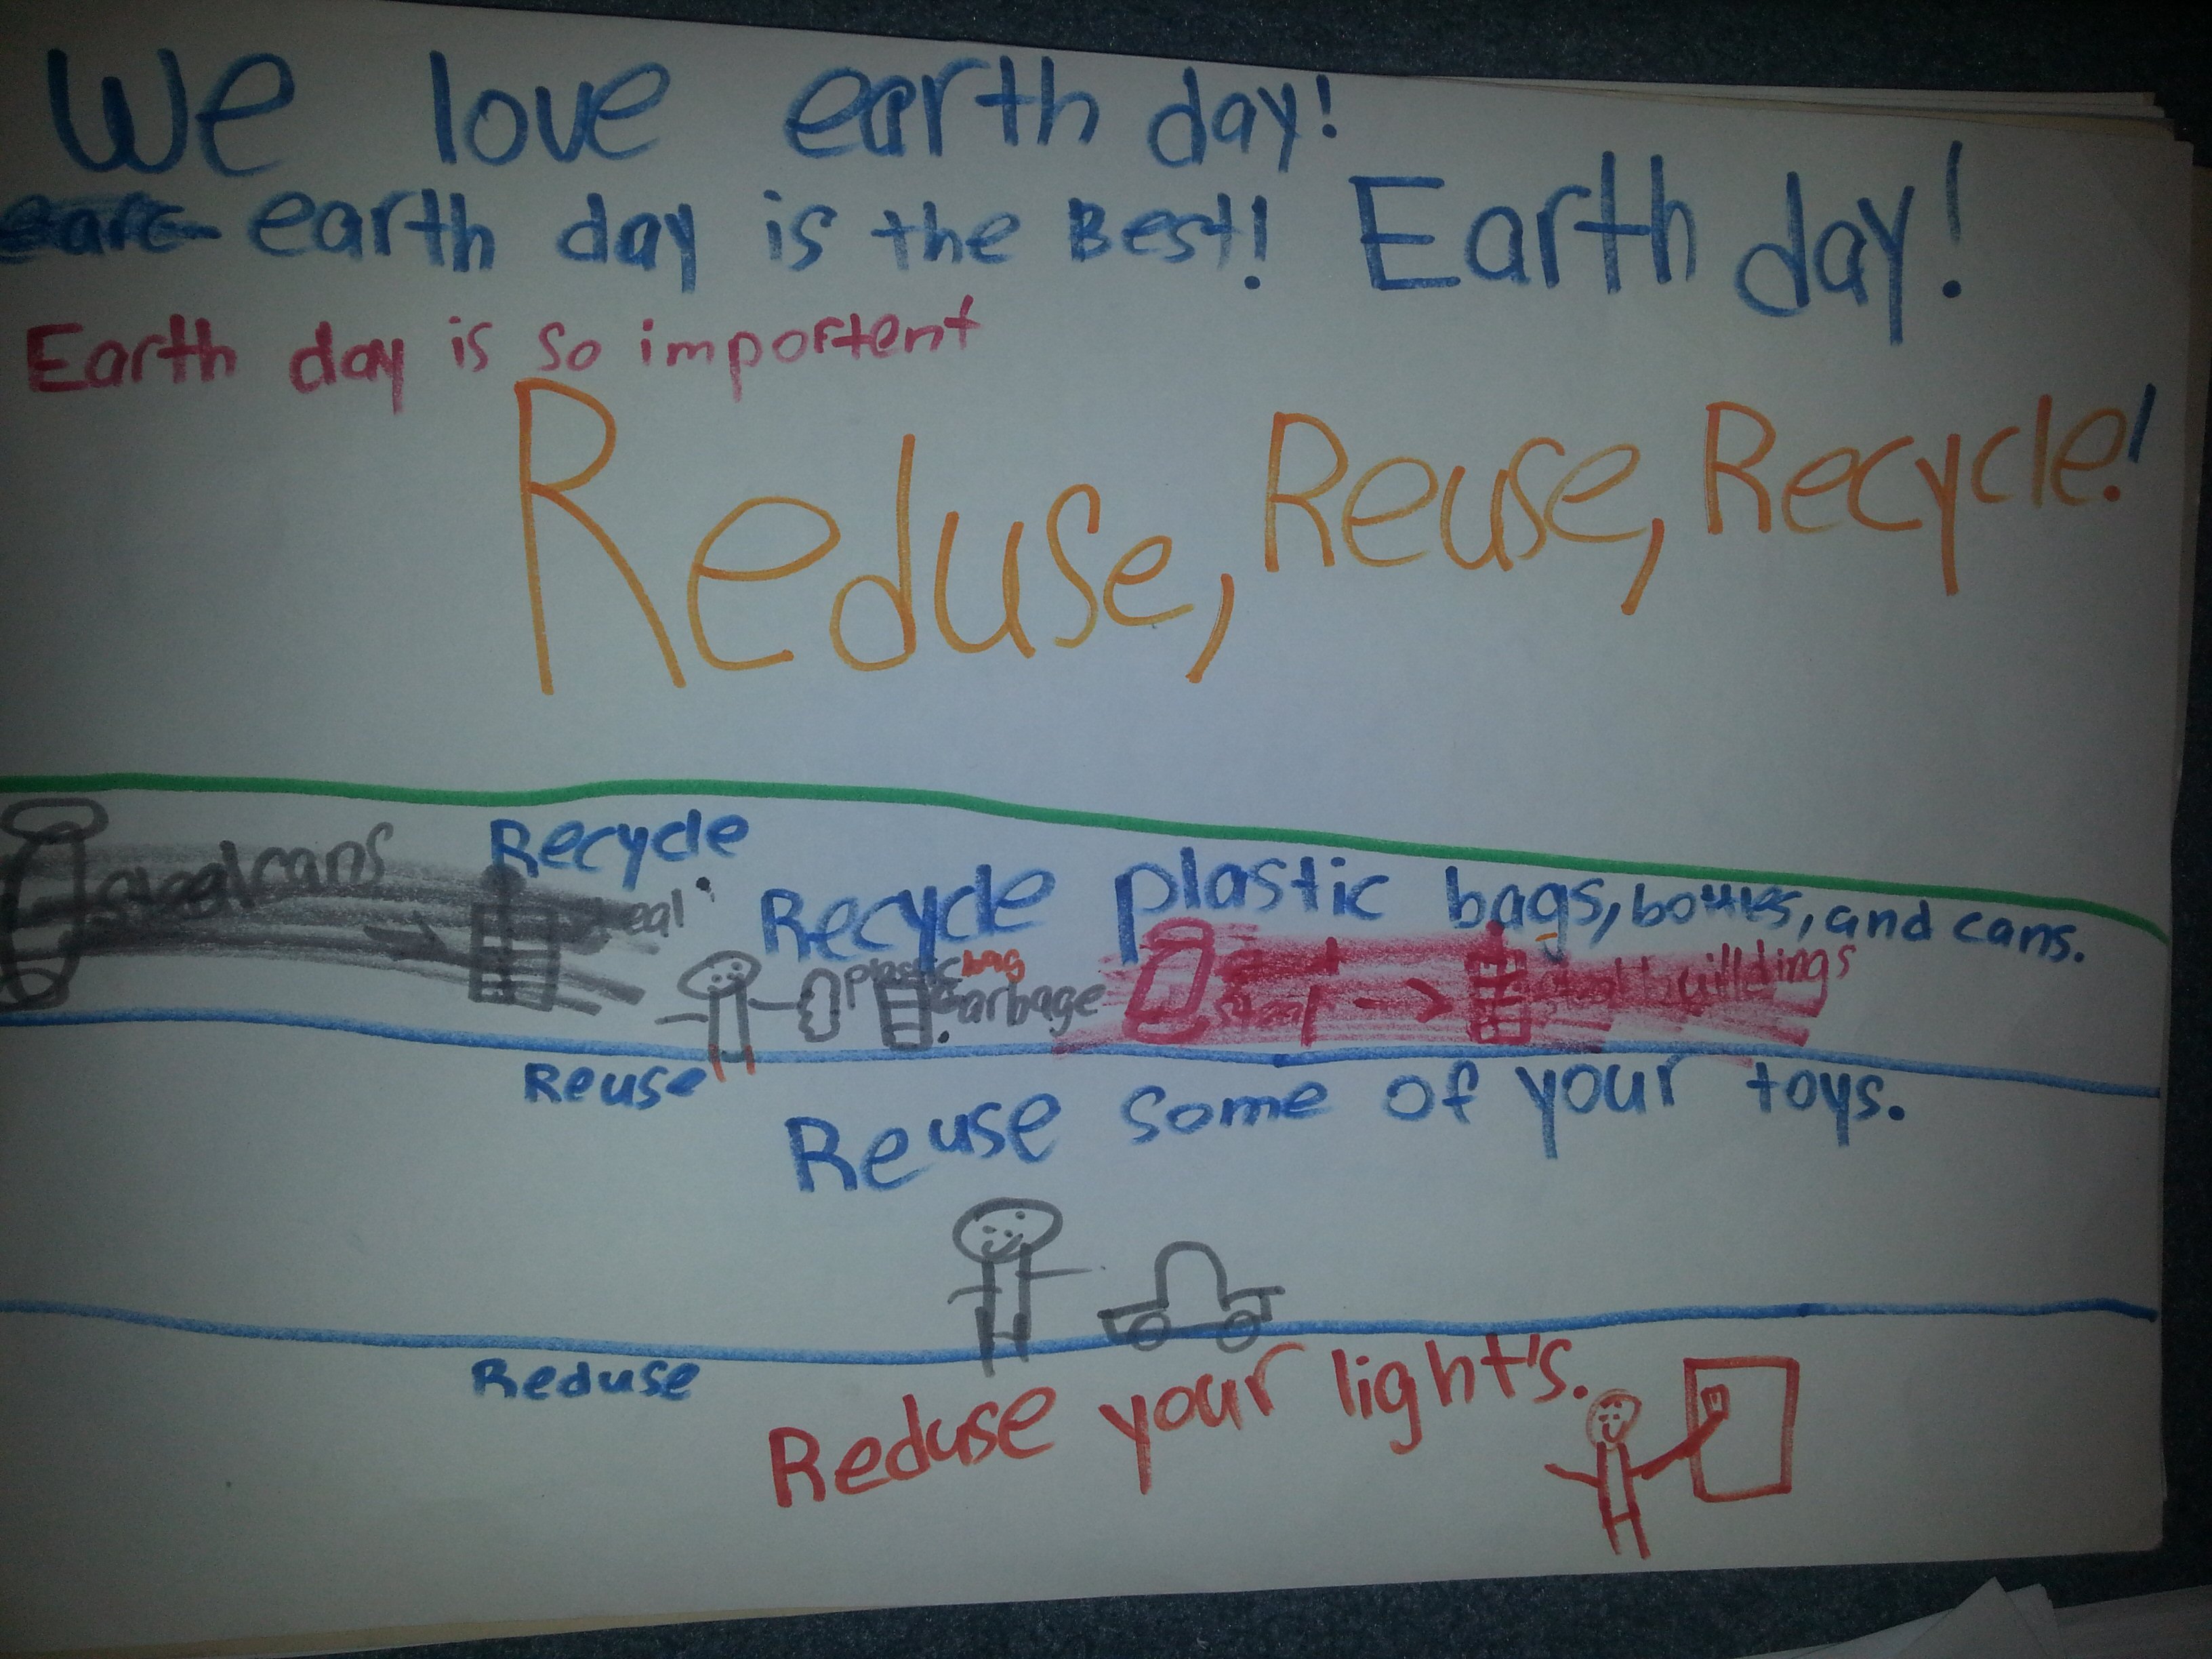 We love earth day!
earth day is the Best! Earth day!
Earth day is so importent
Reduse, Reuse, Recycle!
Recycle
steel cans
Recycle plastic bags, bottles, and cans.
plastic bag
garbage
buildings
Reuse
Reuse some of your toys.
Reduse
Reduse your light's.